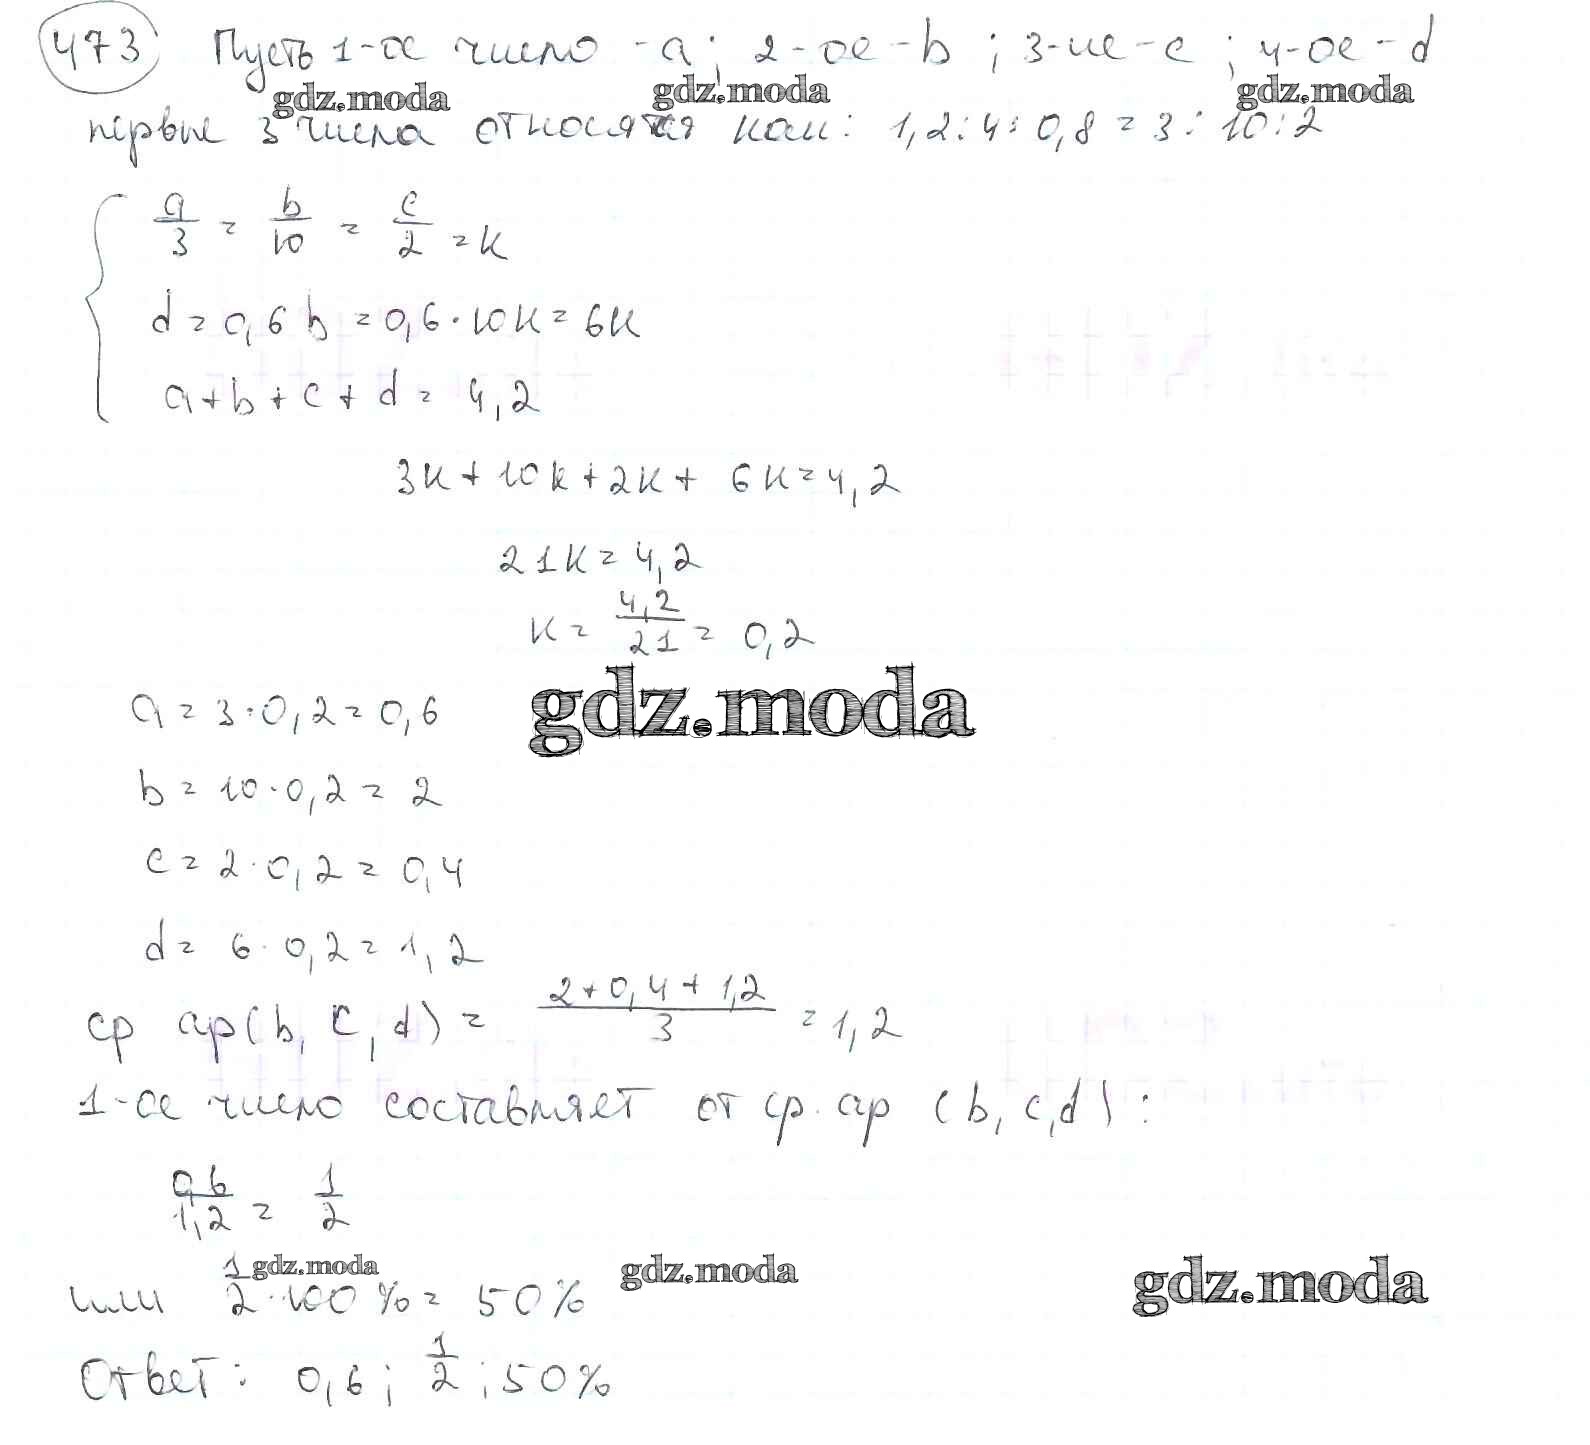 473 Пусть 1-ое число - a; 2-ое - b; 3-ие - c; 4-ое - d
gdz.moda gdz.moda gdz.moda
первые 3 числа относятся как: 1,2:4:0,8 = 3:10:2
a/3 = b/10 = c/2 = к
d = 0,6 b = 0,6 · 10к = 6к
a + b + c + d = 4,2
3к + 10к + 2к + 6к = 4,2
21к = 4,2
к = 4,2/21 = 0,2
gdz.moda
a = 3 · 0,2 = 0,6
b = 10 · 0,2 = 2
c = 2 · 0,2 = 0,4
d = 6 · 0,2 = 1,2
ср ар(b, c, d) = (2 + 0,4 + 1,2)/3 = 1,2
1-ое число составляет от ср. ар (b, c, d):
0,6/1,2 = 1/2
gdz.moda gdz.moda gdz.moda
или 1/2 · 100% = 50%
Ответ: 0,6; 1/2; 50%